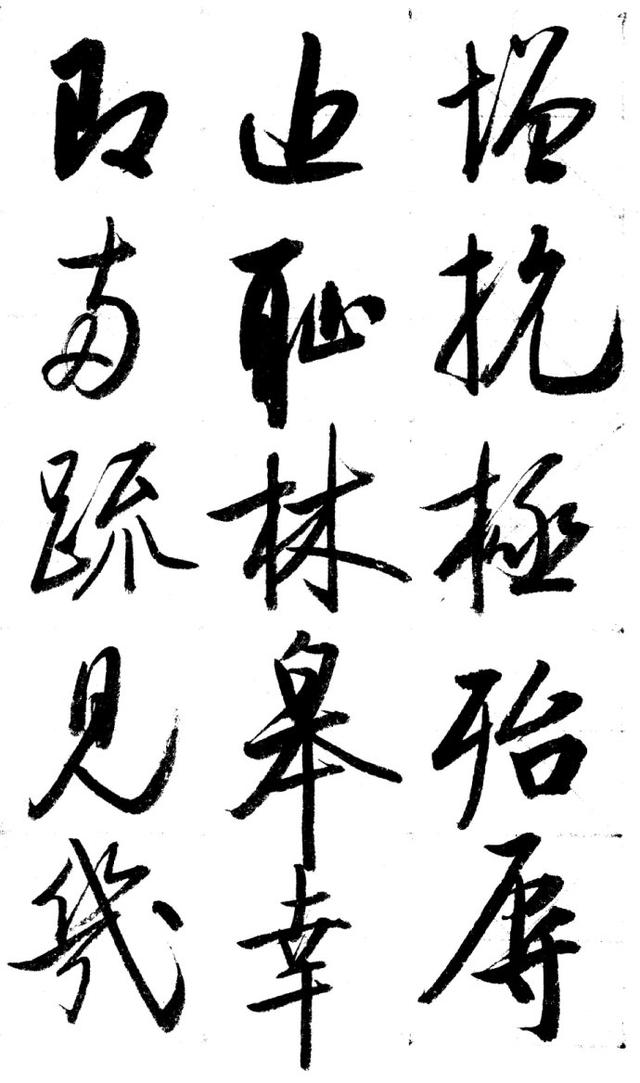 增抗極殆辱
近耻林皋幸
即兩疏見幾